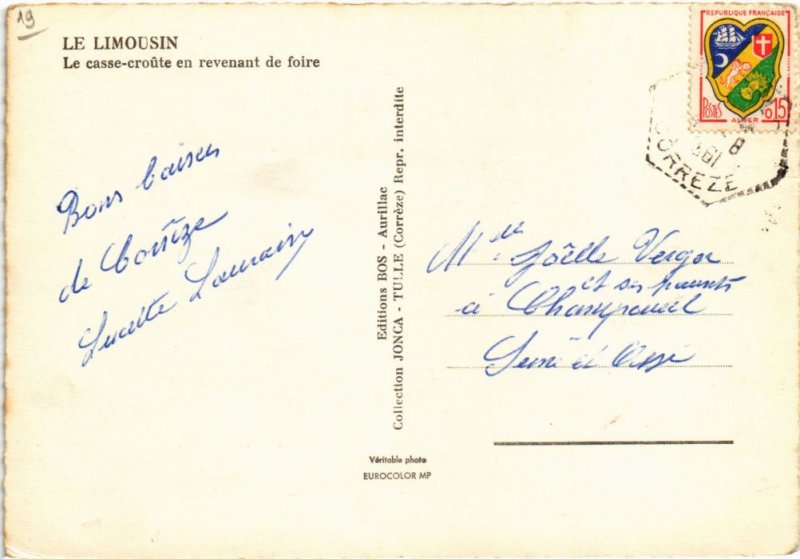 19
LE LIMOUSIN
Le casse-croûte en revenant de foire
RÉPUBLIQUE FRANÇAISE
POSTES
ALGER
0,15
CORREZE
Bons baisers
de Corrèze
Lucette
Editions BOS - Aurillac
Collection JONCA - TULLE (Corrèze) Repr. interdite
Melle Joëlle
et ses parents
à
Seine et Oise
Véritable photo
EUROCOLOR MP